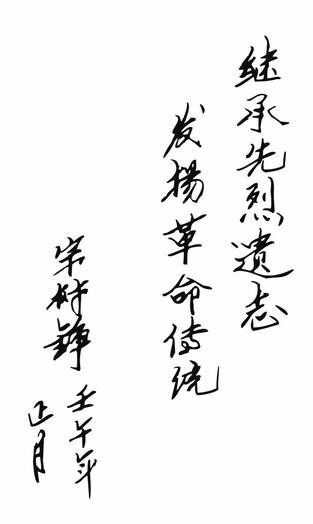 继承先烈遗志
发揚革命傳统
宋树铮
壬午年
正月